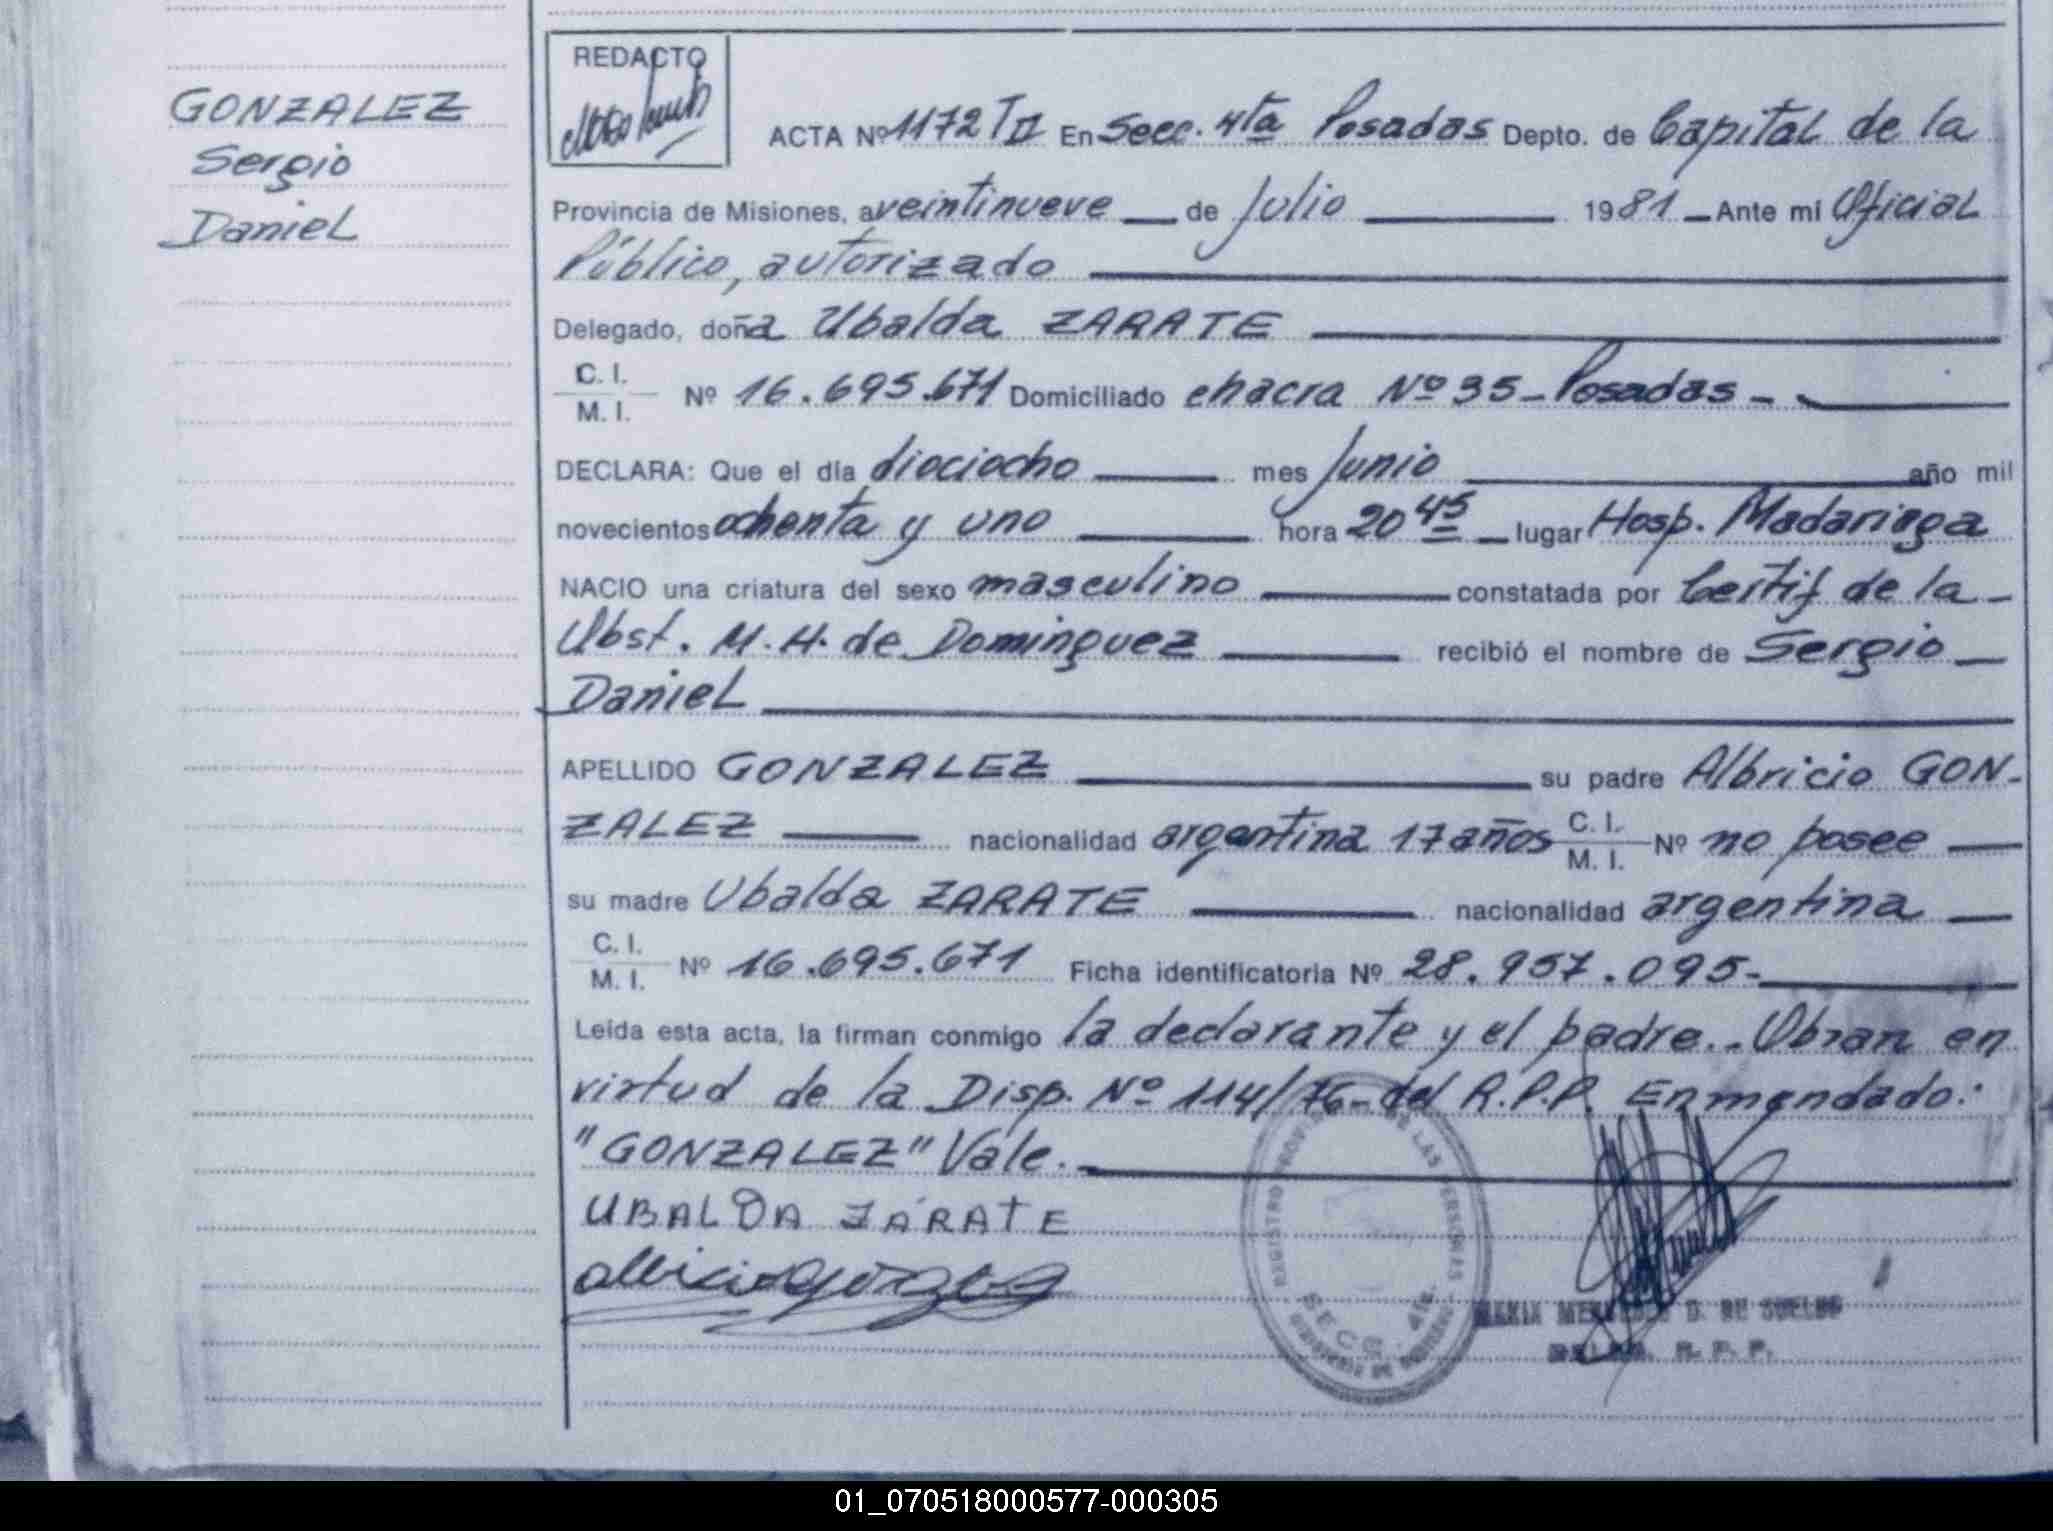 GONZALEZ
Sergio
Daniel
REDACTO
ACTA Nº 1172 TII En Secc. 4ta Posadas Depto. de Capital de la
Provincia de Misiones, a veintinueve de Julio 1981 Ante mí Oficial
Público, autorizado
Delegado, doña Ubalda ZARATE
C. I.
M. I. Nº 16.695.671 Domiciliado chacra Nº 35 - Posadas -
DECLARA: Que el día diociocho mes Junio año mil
novecientos ochenta y uno hora 20 45 lugar Hosp. Madariaga
NACIO una criatura del sexo masculino constatada por Certif de la
Obst. M. H. de Dominguez recibió el nombre de Sergio
Daniel
APELLIDO GONZALEZ su padre Albricio GON-
ZALEZ nacionalidad argentina 17 años C. I. M. I. Nº no posee
su madre Ubalda ZARATE nacionalidad argentina
C. I.
M. I. Nº 16.695.671 Ficha identificatoria Nº 28.957.095-
Leída esta acta, la firman conmigo la declarante y el padre.. Obran en
virtud de la Disp. Nº 114/76 - del R.P.P. Enmendado:
"GONZALEZ" Vale.
UBALDA ZÁRATE
REGISTRO DE LAS PERSONAS
SECC. 4ta.
R. P. P.
01_070518000577-000305